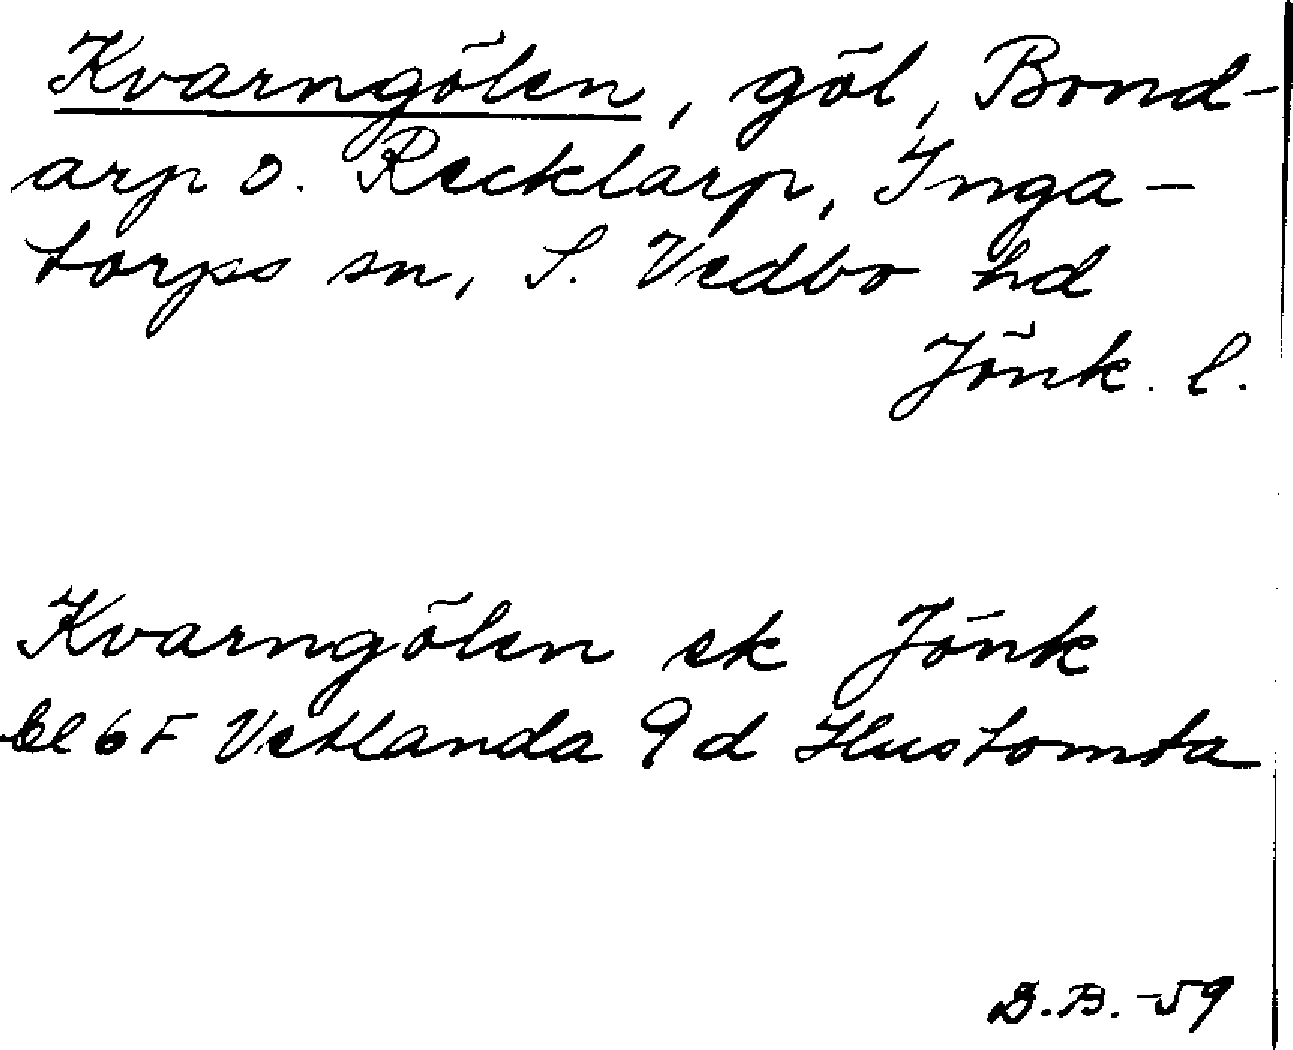 Kvarngölen, göl, Bond-
arp o. Recklarp, Inga-
torps sn, S. Vedbo hd
Jönk. l.
Kvarngölen ek Jönk
bl 6 F Vetlanda 9 d Hustomta
B.B. -59